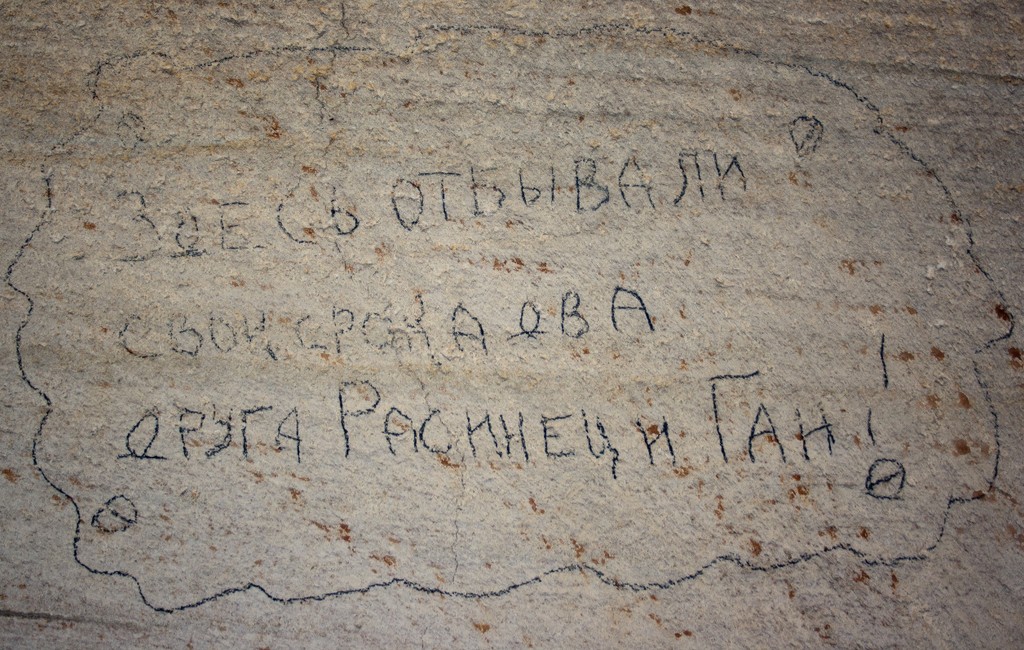 Здесь отбывали
свои срока два
друга Расинец и Ган!